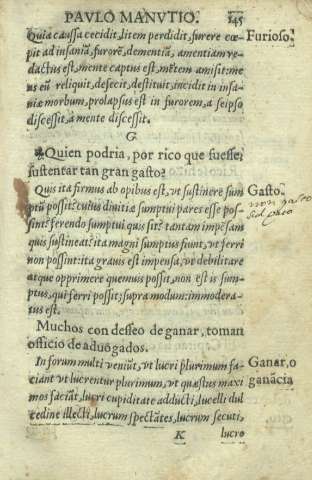 PAVLO MANVTIO. 145
Quia caussa cecidit, litem perdidit, furere cœ- Furioso.
pit ad insaniã, furorẽ, dementiã, amentiam re-
dactus est, mente captus est, mẽtem amisit: me-
ns eũ reliquit, defecit, destituit, incidit in insa-
niæ morbum, prolapsus est in furorem, a seipso
discessit, a mente discessit.
G
Quien podria, por rico que fuesse,
sustentar tan gran gasto?
Quis ita firmus ab opibus est, vt sustinere sum Gasto.
ptũ possit? cuius diuitiæ sumptui pares esse pos-
sint? ferendo sumptui quis sit? tantam impẽsam
quis sustineat? ita magni sumptus fiunt, vt ferri
non possint: ita grauis est impensa, vt debilitare
atque opprimere quemuis possit, non est is sum-
ptus, qui ferri possit; supra modum: immodera-
tus est.
Muchos con desseo de ganar, toman
officio de aduogados.
In forum multi veniũt, vt lucri plurimum fa- Ganar, o
ciant, vt lucrentur plurimum, vt quæstus maxi ganãcia
mos faciãt, lucri cupiditate adducti, lucelli dul
cedine illecti, lucrum spectãtes, lucrum secuti,
K lucro